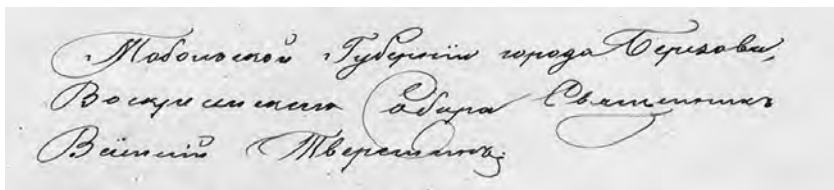 Тобольской Губернiи города Березова,
Воскресенскаго Собора Священникъ
Василiй Тверетинъ.